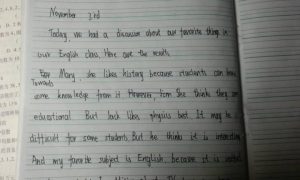 November 3rd
Today, we had a discussion about our favorite thing in
our English class. Here are the result.
Mary, she likes history because students can
Towards
some knowledge from it. However, Tom She thinks they are
educational. But Jack likes physics best. It may be
difficult for some students. But he thinks it is interesting.
And my favorite subject is English, because it is useful